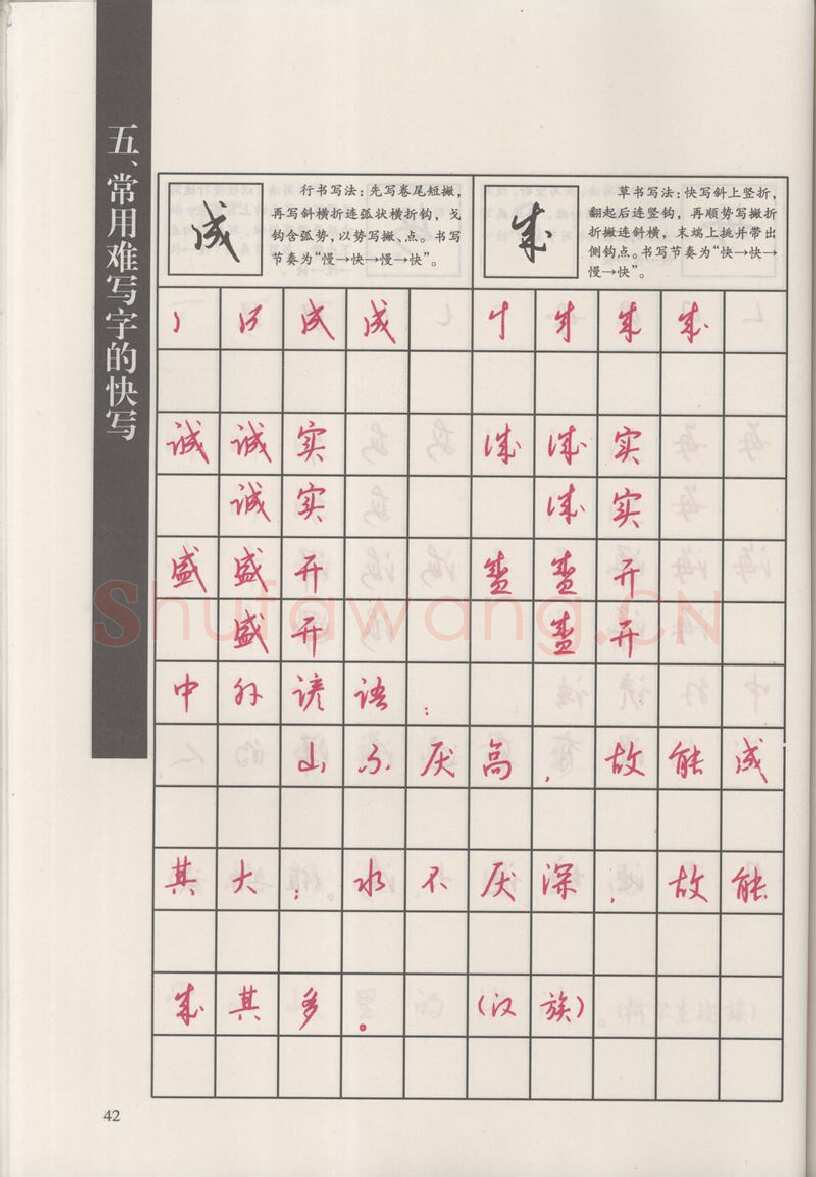 五、常用难写字的快写
成
行书写法：先写卷尾短撇，
再写斜横折连弧状横折钩，戈
钩含弧势，以势写撇、点。书写
节奏为“慢→快→慢→快”。
成
草书写法：快写斜上竖折，
翻起后连竖钩，再顺势写撇折
折撇连斜横，末端上挑并带出
侧钩点。书写节奏为“快→快→
慢→快”。
成 成
诚 诚 实 诚 诚 实
诚 实 诚 实
盛 盛 开 盛 盛 开
盛 开 盛 开
shufawang.CN
中外谚语：
山不厌高，故能成
其大；水不厌深，故能
成其多。（汉族）
42